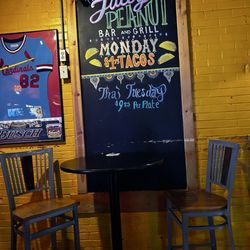 Salty
PEANUT
BAR AND GRILL
MONDAY
$1 TACOS
Thai Tuesday
9.95 Per Plate
Cardinals
82
BUSCH